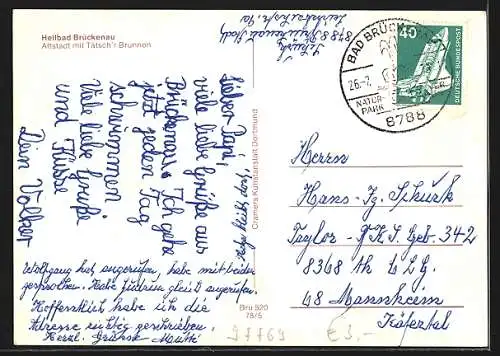 Heilbad Brückenau
Altstadt mit Tätsch'r Brunnen
8788 Bad Brückenau-Stadt
BAD BRÜCKENAU
26.-7.
NATUR-
PARK
8788
40
DEUTSCHE BUNDESPOST
Lieber Papi,
viele liebe Grüße aus
Brückenau. Ich gehe
jetzt jeden Tag
schwimmen
Viele liebe Grüße
und Küsse
Dein Volker
Wolfgang hat angerufen, habe mit beiden
gesprochen. Habe Judrun gleich angerufen.
Hoffentlich habe ich die
Adresse richtig geschrieben.
Herzl. Grüße Mutti
Cramers Kunstanstalt Dortmund
Brü 520
78/5
Herrn
Hans-Jg. Sch
Taylor - Geb. 342
8368 th
68 Mannheim
Käfertal
97769
€ 3.-